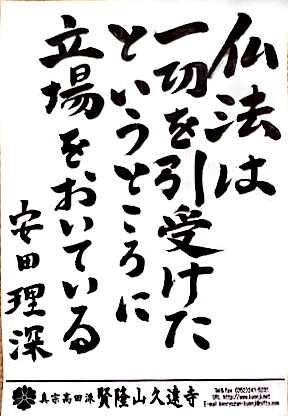 仏法は
一切を引受けた
というところに
立場をおいている
安田理深
真宗高田派 賢隆山久遠寺